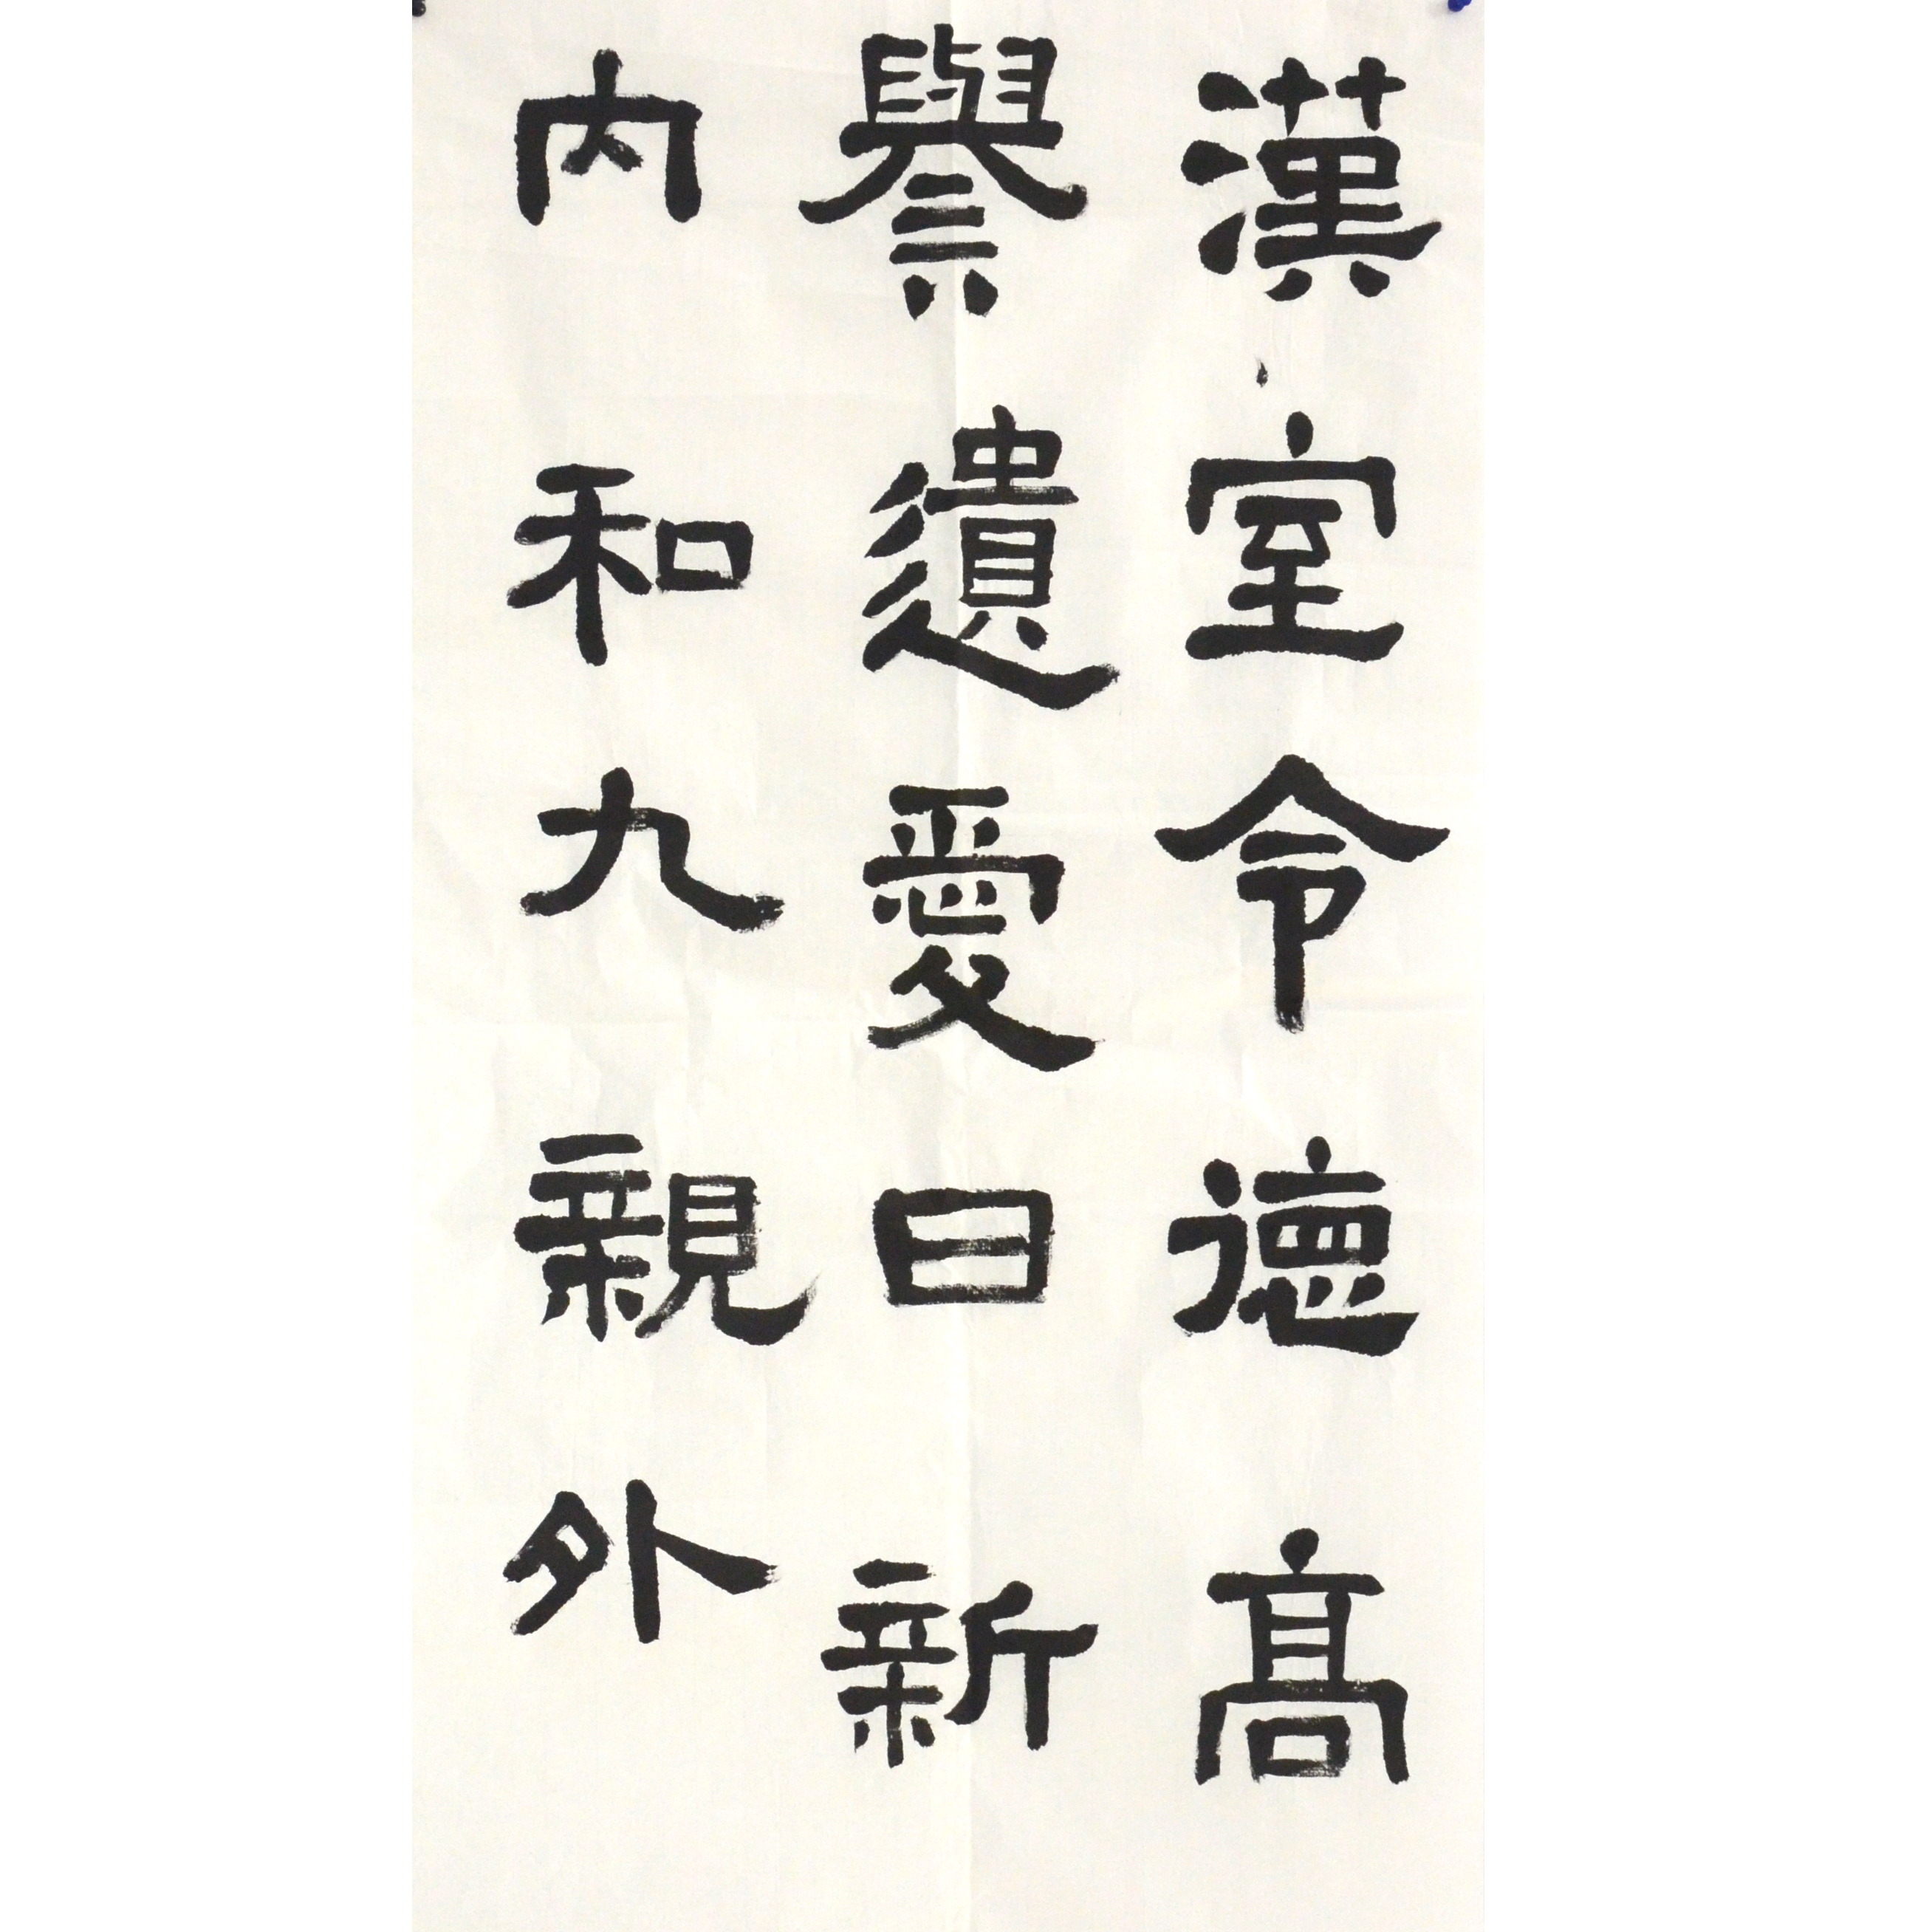 漢室令德高
譽遺愛日新
内和九親外